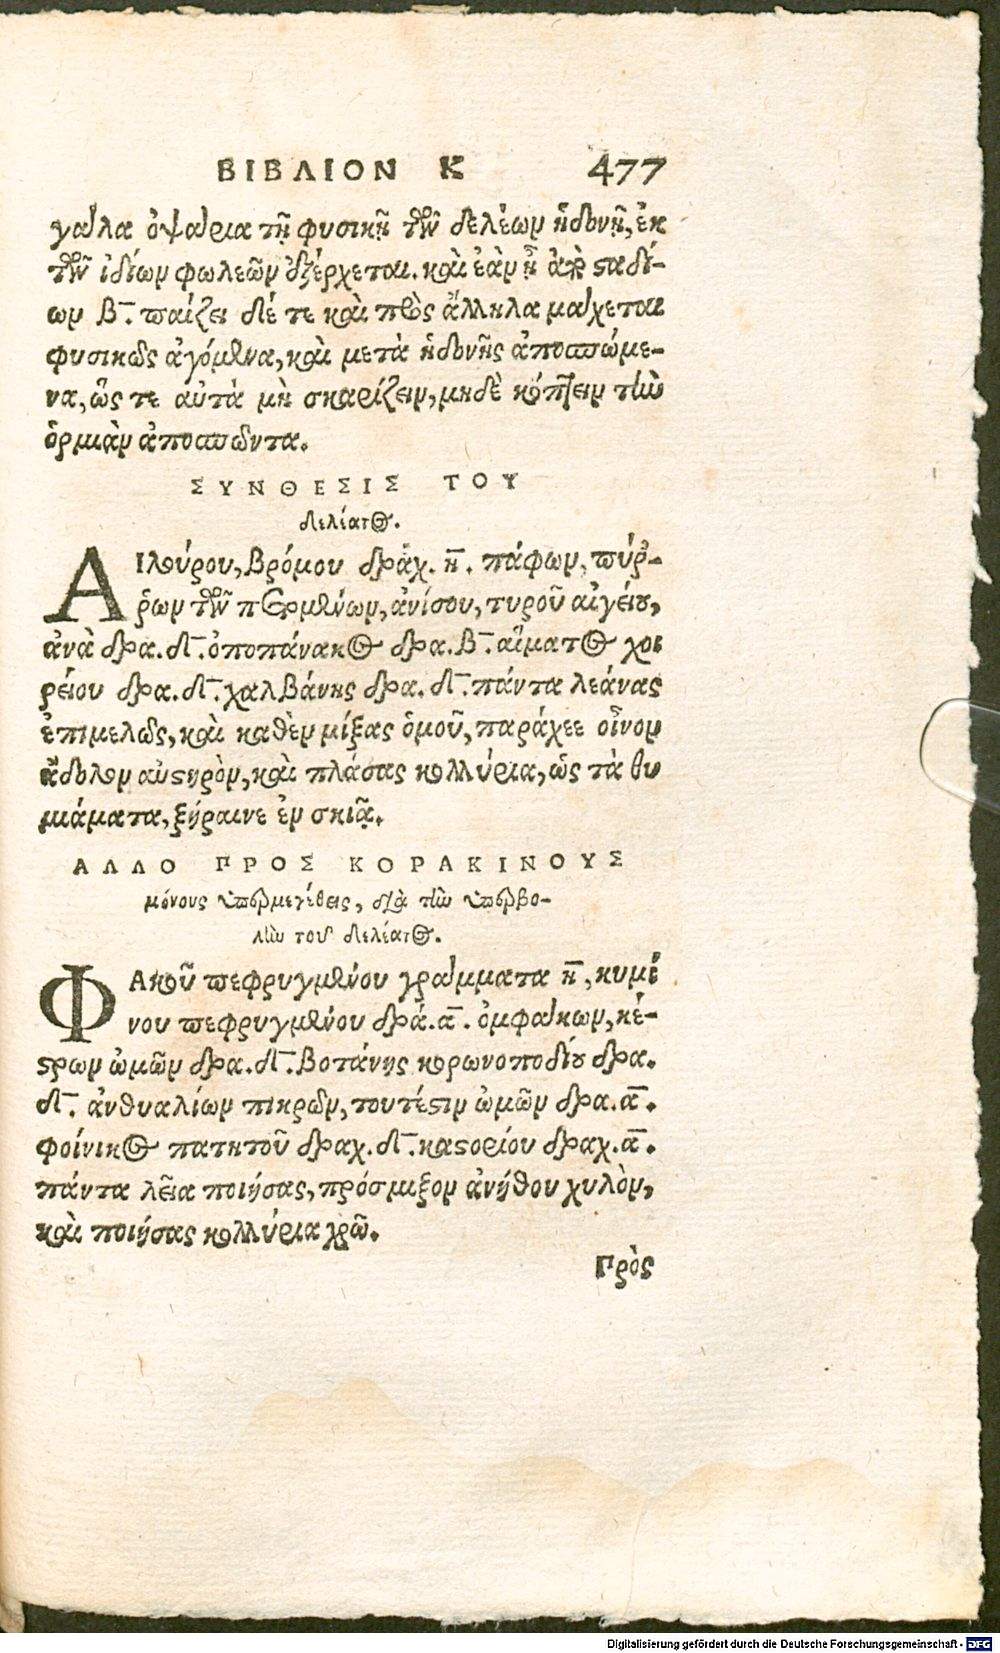 ΒΙΒΛΙΟΝ Κ 477
γάλα ὀψάρια τῇ φυσικῇ τῶν δελέων ἡδονῇ, ἐκ
τῶν ἰδίων φωλεῶν ἐξέρχεται. καὶ ἐὰν ᾖ ἀπὸ σταδί-
ων β̅. παίζει δέ τε καὶ πρὸς ἄλληλα μάχεται
φυσικῶς ἀγόμενα, καὶ μετὰ ἡδονῆς ἀποσπώμε-
να, ὥς τε αὐτὰ μὴ σκαρίζειν, μηδὲ κόπτειν τὴν
ὁρμιὰν ἀποσπῶντα.
ΣΥΝΘΕΣΙΣ ΤΟΥ
δελέατος.
ΑΙλούρου, βρόμου δραχ. η̅. πάφων, πύρ-
ῥων τῶν πεπερμένων, ἀνίσου, τυροῦ αἰγείου,
ἀνὰ δρα. δ̅. ὀποπάνακος δρα. β̅. αἵματος χοι
ρείου δρα. δ̅. χαλβάνης δρα. δ̅. πάντα λεάνας
ἐπιμελῶς, καὶ καθὲν μίξας ὁμοῦ, παράχεε οἶνον
ἄδολον αὐστηρὸν, καὶ πλάσας κολλύρια, ὡς τὰ θυ
μιάματα, ξήραινε ἐν σκιᾷ.
ΑΛΛΟ ΠΡΟΣ ΚΟΡΑΚΙΝΟΥΣ
μόνους ὑπερμεγέθεις, διὰ τὴν ὑπερβο-
λὴν τοῦ δελέατος.
ΦΑκοῦ πεφρυγμένου γράμματα η̅, κυμί
νου πεφρυγμένου δρά. α̅. ὀμφάκων, κέ-
στρων ὠμῶν δρα. δ̅. βοτάνης κορωνοποδίου δρα.
δ̅. ἀνθυαλίων πικρῶν, τουτέστιν ὠμῶν δρα. α̅.
φοίνικος πατητοῦ δραχ. δ̅. καστορίου δραχ. α̅.
πάντα λεῖα ποιήσας, πρόσμιξον ἀνήθου χυλὸν,
καὶ ποιήσας κολλύρια χρῶ.
Πρὸς
Digitalisierung gefördert durch die Deutsche Forschungsgemeinschaft - DFG